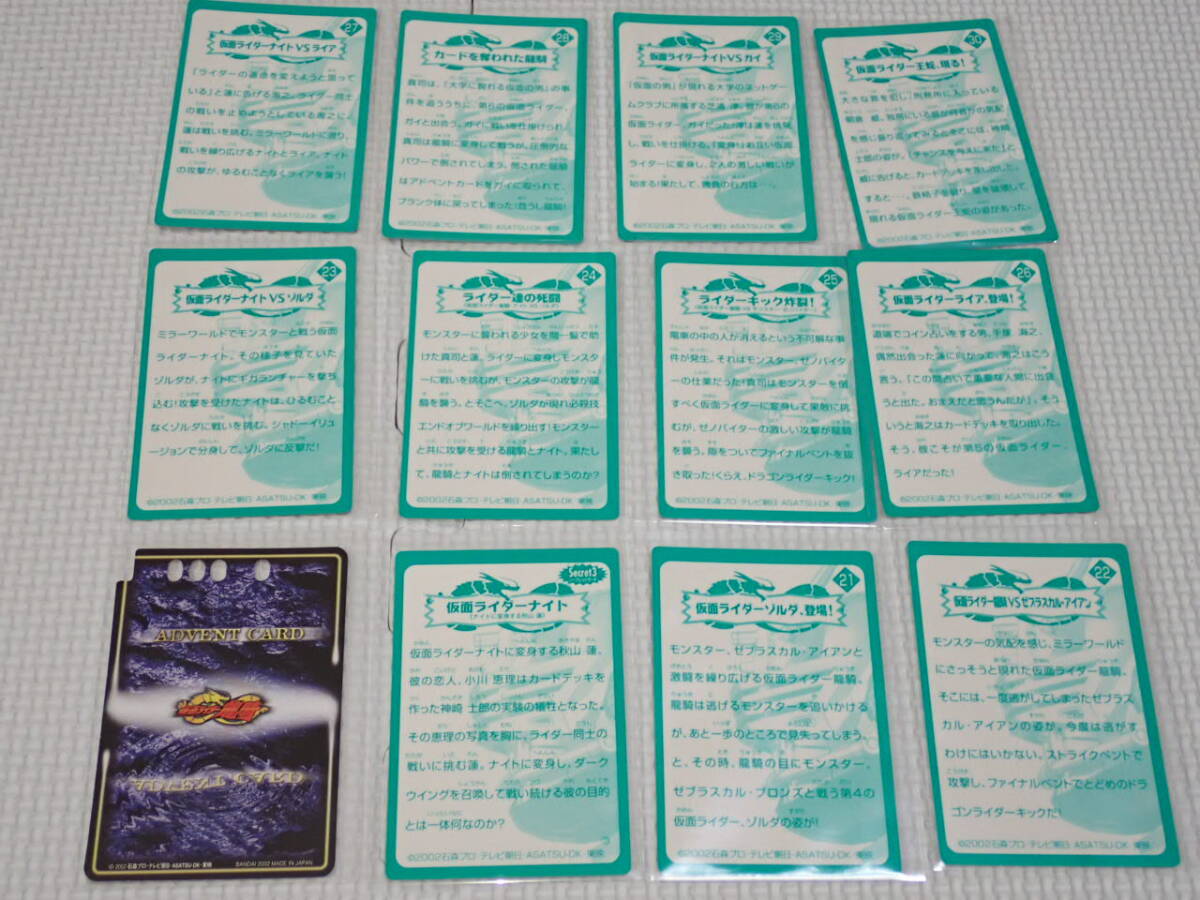 27
仮面ライダーナイト VS ライア
「ライダーの運命を変えようと思って
いる」と蓮に告げる海之。ライダー同士
の戦いを止めようとしている海之に、
蓮は戦いを挑む。ミラーワールドに渡り、
戦いを繰り広げるナイトとライア。ナイト
の攻撃が、ゆるむことなくライアを襲う!
©2002石森プロ・テレビ朝日・ASATSU-DK・東映
28
カードを奪われた龍騎
真司は、「大学に現れる仮面の男」の事
件を追ううちに、第6の仮面ライダー、
ガイと出会う。ガイに戦いを仕掛けられ、
真司は龍騎に変身して戦うが、圧倒的な
パワーで倒されてしまう。倒された龍騎
はアドベントカードをガイに取られて、
ブランク体に戻ってしまった!危うし龍騎!
©2002石森プロ・テレビ朝日・ASATSU-DK・東映
29
仮面ライダーナイトVS ガイ
「仮面の男」が現れる大学のネットゲー
ムクラブに所属する芝浦 淳。彼が第6の
仮面ライダー、ガイだった!淳は蓮を挑発
し、戦いを仕掛ける。「変身!」お互い仮面
ライダーに変身し、2人の激しい戦いが
始まる!果たして、勝負の行方は…。
©2002石森プロ・テレビ朝日・ASATSU-DK・東映
30
仮面ライダー王蛇、現る!
大きな罪を犯し、刑務所に入っている
浅倉 威。独房にいる威が何者かの気配
を感じ振り返ってみるとそこには、神崎
士郎の姿が。「チャンスを与えに来た」と
威に告げると、カードデッキを差し出した。
すると…、鉄格子を破り、壁を破壊して
現れる仮面ライダー王蛇の姿があった。
©2002石森プロ・テレビ朝日・ASATSU-DK・東映
23
仮面ライダーナイト VS ゾルダ
ミラーワールドでモンスターと戦う仮面
ライダーナイト。その様子を見ていた
ゾルダが、ナイトにギガランチャーを撃ち
込む!攻撃を受けたナイトは、ひるむこと
なくゾルダに戦いを挑む。シャドーイリュ
ージョンで分身して、ゾルダに反撃だ!
©2002石森プロ・テレビ朝日・ASATSU-DK・東映
24
ライダー達の死闘
モンスターに襲われる少女を間一髪で助
けた真司と蓮。ライダーに変身しモンスタ
ーに戦いを挑むが、モンスターの攻撃が龍
騎を襲う。とそこへ、ゾルダが現れ必殺技
エンドオブワールドを繰り出す!モンスター
と共に攻撃を受ける龍騎とナイト。果たし
て、龍騎とナイトは倒されてしまうのか?
©2002石森プロ・テレビ朝日・ASATSU-DK・東映
25
ライダーキック炸裂!
電車の中の人が消えるという不可解な事
件が発生。それはモンスター、ゼノバイタ
ーの仕業だった!真司はモンスターを倒
すべく仮面ライダーに変身して果敢に挑
むが、ゼノバイターの激しい攻撃が龍騎
を襲う。隙をついてファイナルベントを抜
き取った!くらえ、ドラゴンライダーキック!
©2002石森プロ・テレビ朝日・ASATSU-DK・東映
26
仮面ライダーライア、登場!
道端でコイン占いをする男、手塚 海之。
偶然出会った蓮に向かって、海之はこう
言う。「この間占いで重要な人物に出会
うと出た。おまえだと思うんだが」。そう
いうと海之はカードデッキを取り出した。
そう、彼こそが第5の仮面ライダー、
ライアだった!
©2002石森プロ・テレビ朝日・ASATSU-DK・東映
ADVENT CARD
仮面ライダー龍騎
ADVENT CARD
© 2002 石森プロ・テレビ朝日・ASATSU-DK・東映
BANDAI 2002 MADE IN JAPAN
Secret3
仮面ライダーナイト
(ナイトに変身する秋山 蓮)
仮面ライダーナイトに変身する秋山 蓮。
彼の恋人、小川 恵理はカードデッキを
作った神崎 士郎の実験の犠牲となった。
その恵理の写真を胸に、ライダー同士の
戦いに挑む蓮。ナイトに変身し、ダーク
ウイングを召喚して戦い続ける彼の目的
とは一体何なのか?
©2002石森プロ・テレビ朝日・ASATSU-DK・東映
21
仮面ライダーゾルダ、登場!
モンスター、ゼブラスカル・アイアンと
激闘を繰り広げる仮面ライダー龍騎。
龍騎は逃げるモンスターを追いかける
が、あと一歩のところで見失ってしまう。
と、その時、龍騎の目にモンスター、
ゼブラスカル・ブロンズと戦う第4の
仮面ライダー、ゾルダの姿が!
©2002石森プロ・テレビ朝日・ASATSU-DK・東映
22
仮面ライダー龍騎 VS ゼブラスカル・アイアン
モンスターの気配を感じ、ミラーワールド
にさっそうと現れた仮面ライダー龍騎。
そこには、一度逃がしてしまったゼブラス
カル・アイアンの姿が。今度は逃がす
わけにはいかない。ストライクベントで
攻撃し、ファイナルベントでとどめのドラ
ゴンライダーキックだ!
©2002石森プロ・テレビ朝日・ASATSU-DK・東映